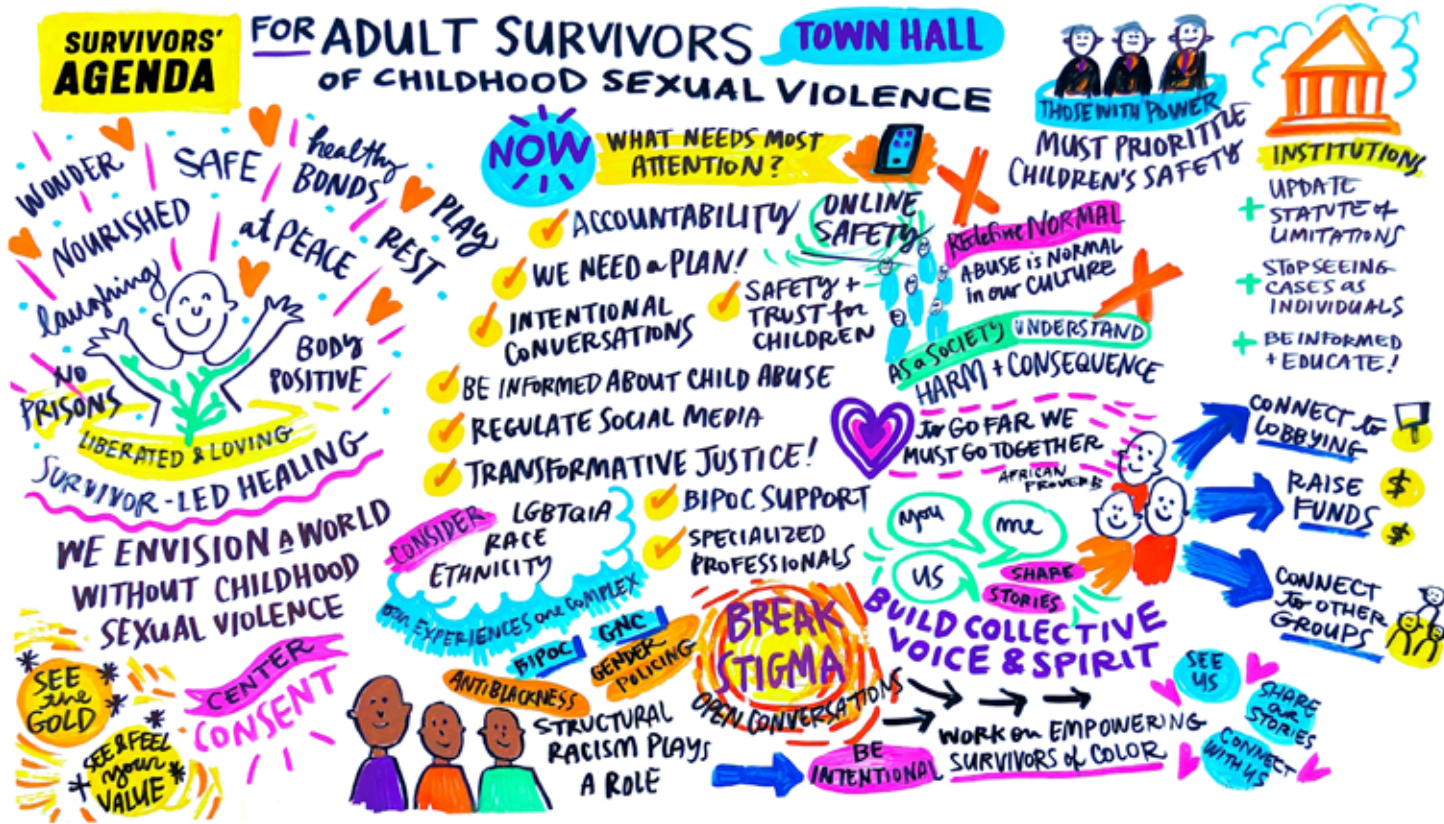 SURVIVORS'
AGENDA
FOR ADULT SURVIVORS
OF CHILDHOOD SEXUAL VIOLENCE
TOWN HALL
WONDER
SAFE
healthy
BONDS
PLAY
NOURISHED
at PEACE
REST
laughing
BODY
POSITIVE
NO
PRISONS
LIBERATED & LOVING
SURVIVOR-LED HEALING
WE ENVISION A WORLD
WITHOUT CHILDHOOD
SEXUAL VIOLENCE
SEE
the
GOLD
SEE & FEEL
your
VALUE
CENTER
CONSENT
NOW
WHAT NEEDS MOST
ATTENTION?
ACCOUNTABILITY
WE NEED a PLAN!
INTENTIONAL
CONVERSATIONS
ONLINE
SAFETY
SAFETY +
TRUST for
CHILDREN
BE INFORMED ABOUT CHILD ABUSE
REGULATE SOCIAL MEDIA
TRANSFORMATIVE JUSTICE!
BIPOC SUPPORT
SPECIALIZED
PROFESSIONALS
CONSIDER
LGBTQIA
RACE
ETHNICITY
OUR EXPERIENCES are COMPLEX
BIPOC
GNC
ANTIBLACKNESS
GENDER
POLICING
STRUCTURAL
RACISM PLAYS
A ROLE
BREAK
STIGMA
OPEN CONVERSATIONS
BE
INTENTIONAL
WORK on EMPOWERING
SURVIVORS of COLOR
THOSE WITH POWER
MUST PRIORITIZE
CHILDREN'S SAFETY
REdefine NORMAL
ABUSE is NORMAL
in our CULTURE
AS a SOCIETY UNDERSTAND
HARM + CONSEQUENCE
To GO FAR WE
MUST GO TOGETHER
AFRICAN
PROVERB
you
me
us
SHARE
STORIES
BUILD COLLECTIVE
VOICE & SPIRIT
INSTITUTIONS
+ UPDATE
STATUTE of
LIMITATIONS
+ STOP SEEING
CASES as
INDIVIDUALS
+ BE INFORMED
+ EDUCATE!
CONNECT to
LOBBYING
RAISE
FUNDS
$
$
CONNECT
to OTHER
GROUPS
SEE
US
SHARE
our
STORIES
CONNECT
WITH US